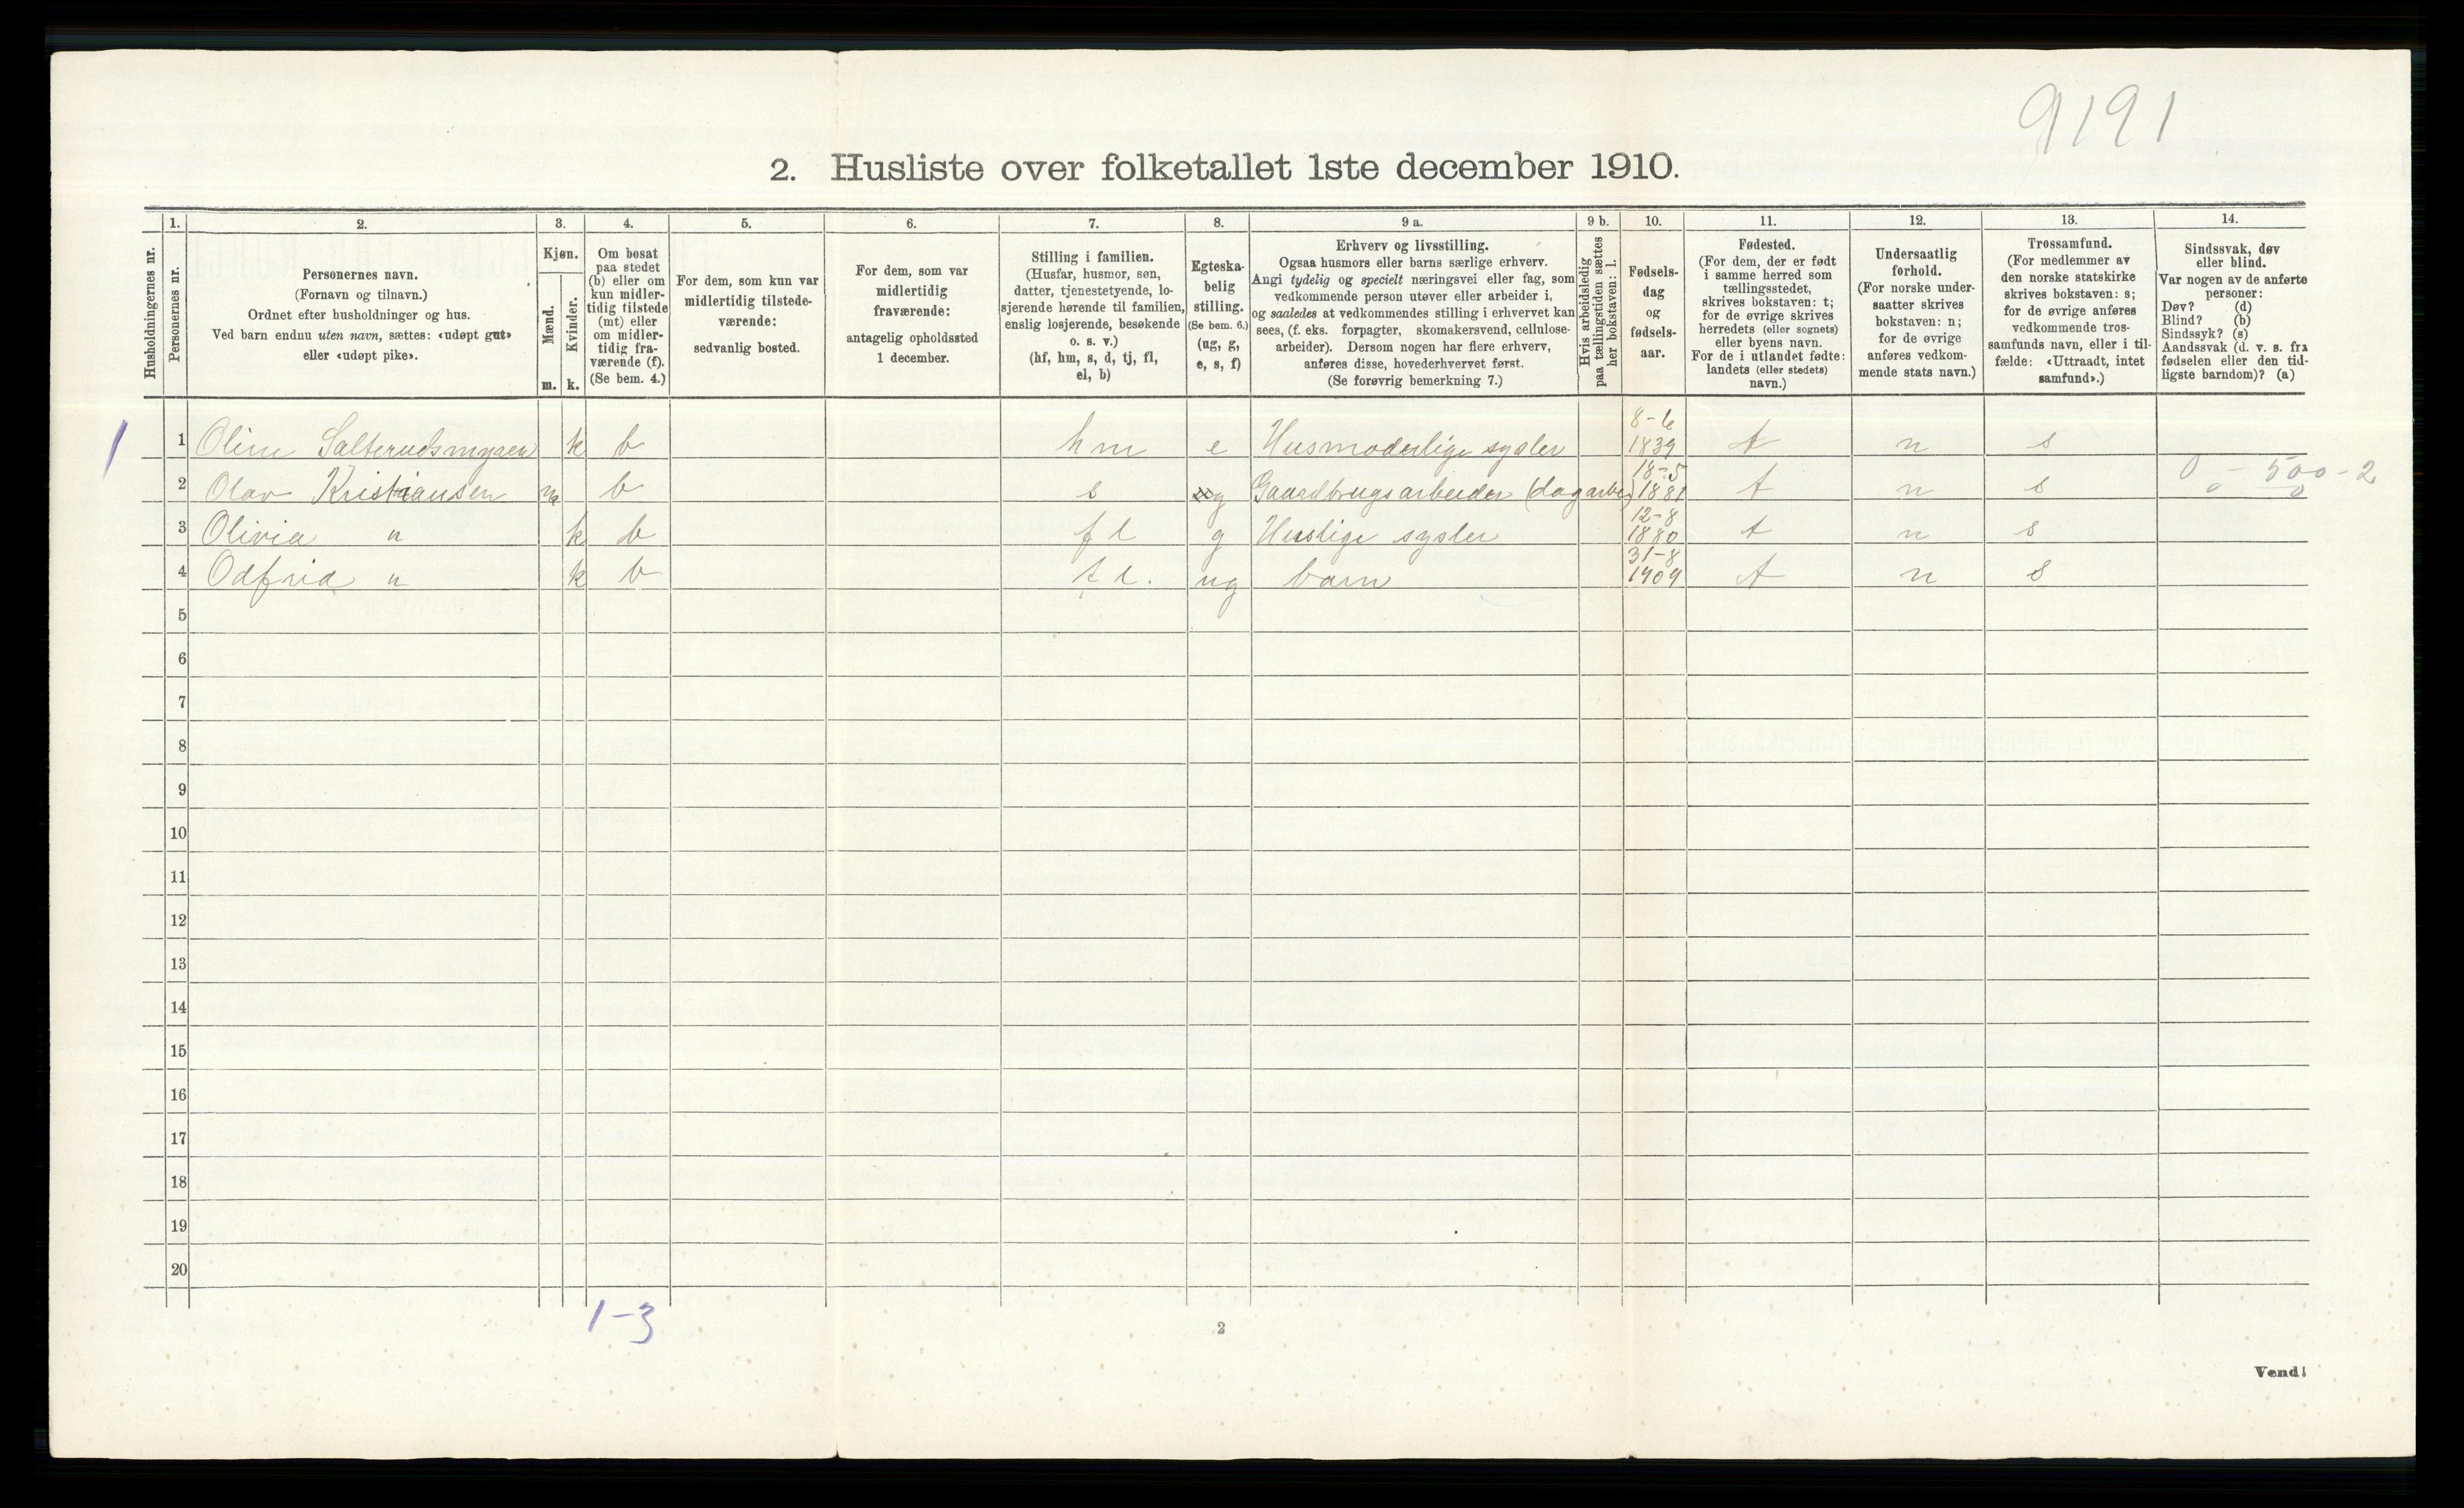 9191
2. Husliste over folketallet 1ste december 1910.
Husholdningernes nr.
1.
Personernes nr.
2.
Personernes navn.
(Fornavn og tilnavn.)
Ordnet efter husholdninger og hus.
Ved barn endnu uten navn, sættes: «udøpt gut»
eller «udøpt pike».
3.
Kjøn.
Mænd.
Kvinder.
m. k.
4.
Om bosat
paa stedet
(b) eller om
kun midler-
tidig tilstede
(mt) eller
om midler-
tidig fra-
værende (f).
(Se bem. 4.)
5.
For dem, som kun var
midlertidig tilstede-
værende:
sedvanlig bosted.
6.
For dem, som var
midlertidig
fraværende:
antagelig opholdssted
1 december.
7.
Stilling i familien.
(Husfar, husmor, søn,
datter, tjenestetyende, lo-
sjerende hørende til familien,
enslig losjerende, besøkende
o. s. v.)
(hf, hm, s, d, tj, fl,
el, b)
8.
Egteska-
belig
stilling.
(Se bem. 6.)
(ug, g,
e, s, f)
9 a.
Erhverv og livsstilling.
Ogsaa husmors eller barns særlige erhverv.
Angi tydelig og specielt næringsvei eller fag, som
vedkommende person utøver eller arbeider i,
og saaledes at vedkommendes stilling i erhvervet kan
sees, (f. eks. forpagter, skomakersvend, cellulose-
arbeider). Dersom nogen har flere erhverv,
anføres disse, hovederhvervet først.
(Se forøvrig bemerkning 7.)
9 b.
Hvis arbeidsledig
paa tællingstiden sættes
her bokstaven: l.
10.
Fødsels-
dag
og
fødsels-
aar.
11.
Fødested.
(For dem, der er født
i samme herred som
tællingsstedet,
skrives bokstaven: t;
for de øvrige skrives
herredets (eller sognets)
eller byens navn.
For de i utlandet fødte:
landets (eller stedets)
navn.)
12.
Undersaatlig
forhold.
(For norske under-
saatter skrives
bokstaven: n;
for de øvrige
anføres vedkom-
mende stats navn.)
13.
Trossamfund.
(For medlemmer av
den norske statskirke
skrives bokstaven: s;
for de øvrige anføres
vedkommende tros-
samfunds navn, eller i til-
fælde: «Uttraadt, intet
samfund».)
14.
Sindssvak, døv
eller blind.
Var nogen av de anførte
personer:
Døv? (d)
Blind? (b)
Sindssyk? (s)
Aandssvak (d. v. s. fra
fødselen eller den tid-
ligste barndom)? (a)
1 1 Oline k b hm e Husmoderlige sysler 8-6 1839 t n s
2 Olav Kristiansen m b s g Gaardbrugsarbeider (dagarb) 18-5 1881 t n s 0 - 500 - 2
0 0
3 Olivia " k b fl g Huslige sysler 12-8 1880 t n s
4 Odfrid " k b fl. ug barn 31-8 1909 t n s
5
6
7
8
9
10
11
12
13
14
15
16
17
18
19
20
1-3
2
Vend!